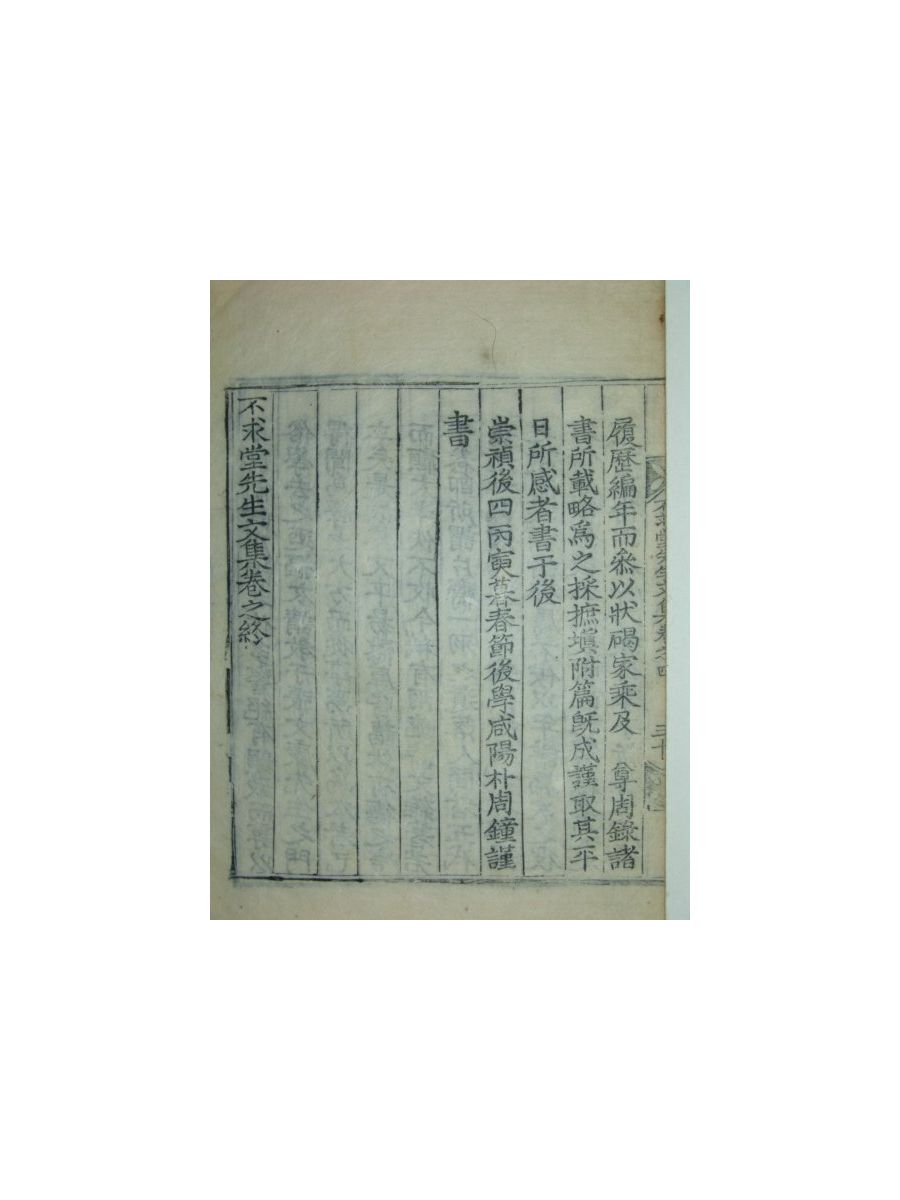 不求堂先生文集卷之四
三十
履歷編年而叅以狀碣家乘及 尊周錄諸
書所載略爲之採摭塡附篇旣成謹取其平
日所感者書于後
崇禎後四丙寅暮春節後學咸陽朴周鐘謹
書
不求堂先生文集卷之終